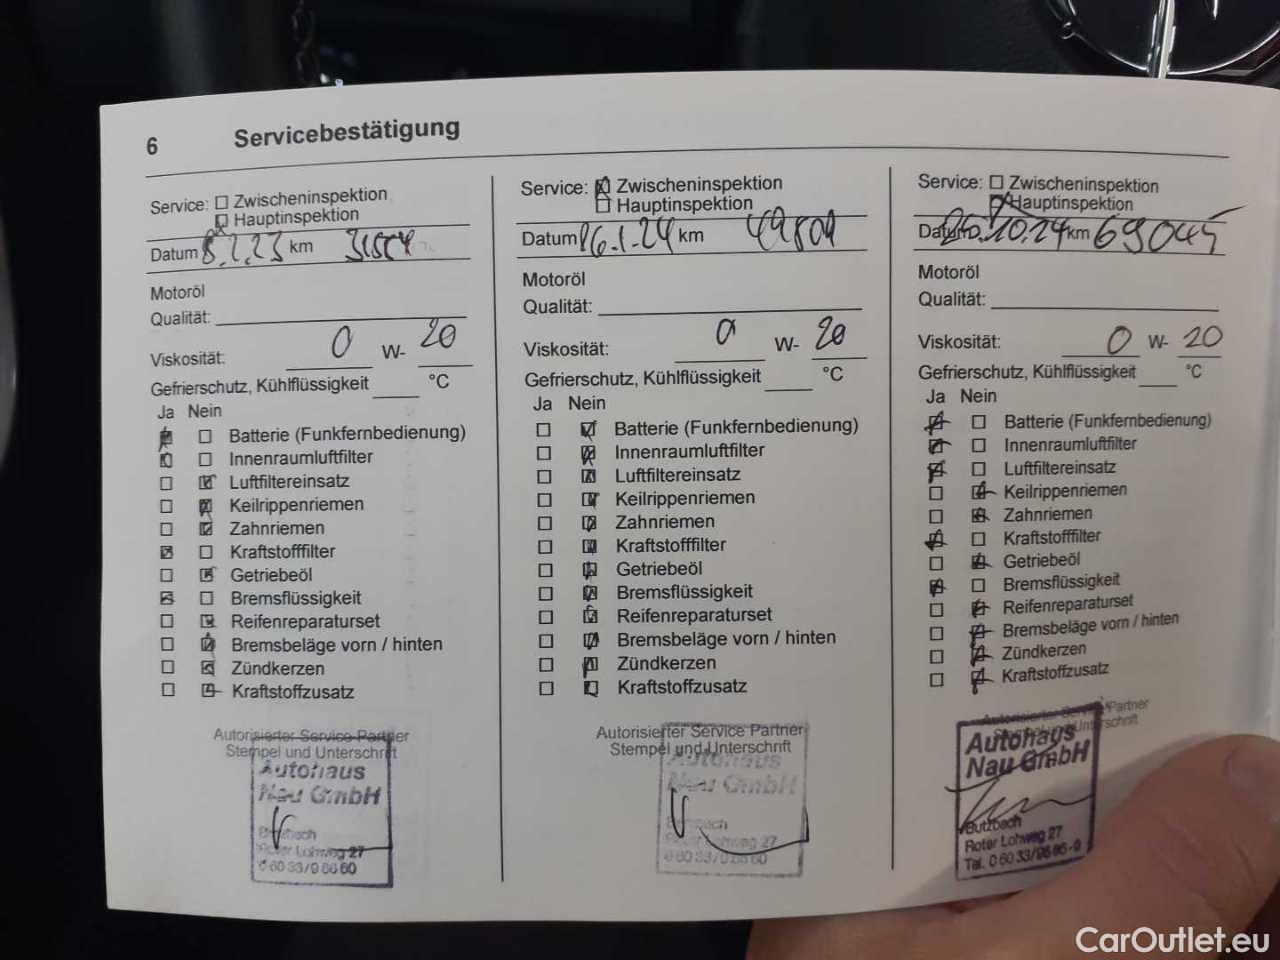 6 Servicebestätigung
Service: Zwischeninspektion
Hauptinspektion
Datum 8.2.23 km
Motoröl
Qualität:
Viskosität: 0 W- 20
Gefrierschutz, Kühlflüssigkeit °C
Ja Nein
Batterie (Funkfernbedienung)
Innenraumluftfilter
Luftfiltereinsatz
Keilrippenriemen
Zahnriemen
Kraftstofffilter
Getriebeöl
Bremsflüssigkeit
Reifenreparaturset
Bremsbeläge vorn / hinten
Zündkerzen
Kraftstoffzusatz
Autorisierter Service Partner
Stempel und Unterschrift
Autohaus
Nau GmbH
Butzbach
Roter Lohweg 27
Service: Zwischeninspektion
Hauptinspektion
Datum 16.1.24 km 49801
Motoröl
Qualität:
Viskosität: 0 W- 20
Gefrierschutz, Kühlflüssigkeit °C
Ja Nein
Batterie (Funkfernbedienung)
Innenraumluftfilter
Luftfiltereinsatz
Keilrippenriemen
Zahnriemen
Kraftstofffilter
Getriebeöl
Bremsflüssigkeit
Reifenreparaturset
Bremsbeläge vorn / hinten
Zündkerzen
Kraftstoffzusatz
Autorisierter Service Partner
Stempel und Unterschrift
Autohaus
Nau GmbH
Butzbach
Roter Lohweg 27
Service: Zwischeninspektion
Hauptinspektion
Datum 25.10.24 km 69045
Motoröl
Qualität:
Viskosität: 0 W- 20
Gefrierschutz, Kühlflüssigkeit °C
Ja Nein
Batterie (Funkfernbedienung)
Innenraumluftfilter
Luftfiltereinsatz
Keilrippenriemen
Zahnriemen
Kraftstofffilter
Getriebeöl
Bremsflüssigkeit
Reifenreparaturset
Bremsbeläge vorn / hinten
Zündkerzen
Kraftstoffzusatz
Autorisierter Service Partner
Stempel und Unterschrift
Autohaus
Nau GmbH
Butzbach
Roter Lohweg 27
Tel. 0 60 33/96 65-0
CarOutlet.eu